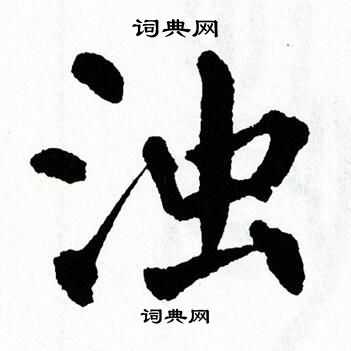 词典网
浊
词典网